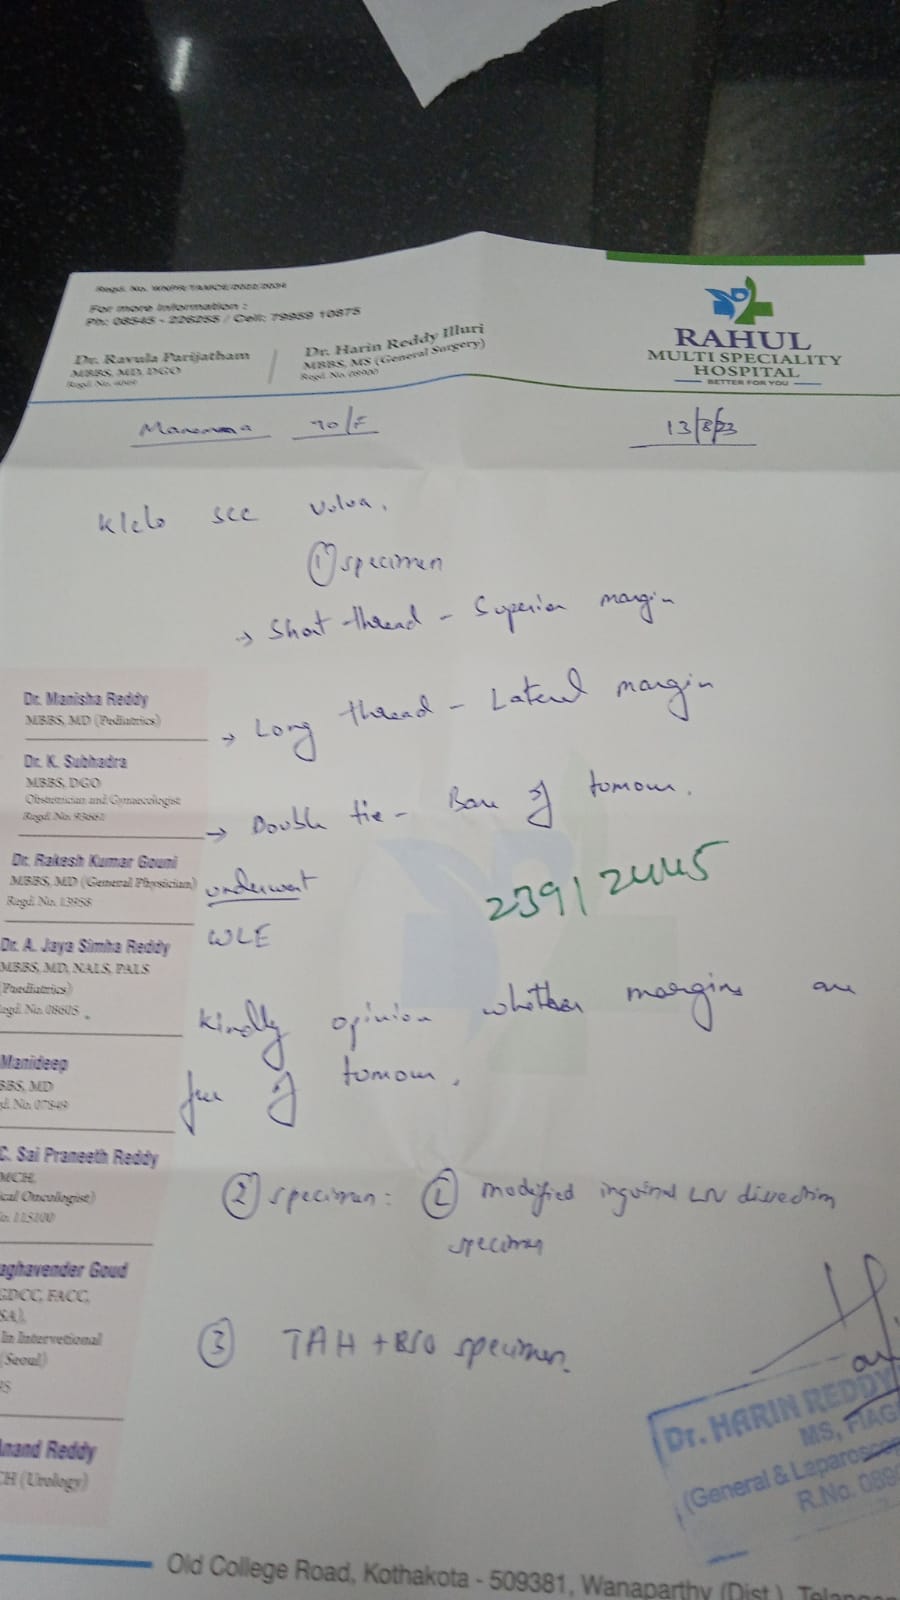 For more Information :
Ph: 08545 - 226255 / Cell: 79959 10875
Dr. Ravula Parijatham
MBBS, MD, DGO
Dr. Harin Reddy Illuri
MBBS, MS (General Surgery)
RAHUL
MULTI SPECIALITY
HOSPITAL
BETTER FOR YOU
70/F
13/8/23
K/c/o SCC Vulva.
① specimen
→ Short thread - Superior margin
→ Long thread - Lateral margin
→ Double tie - Base of tumour.
underwent
WLE
239/2445
Kindly opinion whether margins are
free of tumour.
② specimen: modified inguinal LN dissection
specimen
③ TAH + BSO specimen.
Dr. Manisha Reddy
MBBS, MD (Pediatrics)
Dr. K. Subhadra
MBBS, DGO
Obstetrician and Gynaecologist
Dr. Rakesh Kumar Gouni
MBBS, MD (General Physician)
Regd. No. 13958
Dr. A. Jaya Simha Reddy
MBBS, MD, NALS, PALS
(Paediatrics)
Manideep
BBS, MD
C. Sai Praneeth Reddy
MCH,
cal Oncologist)
aghavender Goud
GDCC, FACC,
SA),
In Intervetional
(Seoul)
Anand Reddy
CH (Urology)
Dr. HARIN REDDY
MS, FIAG
(General & Laparosco
R.No. 089
Old College Road, Kothakota - 509381, Wanaparthy (Dist.), Telangan